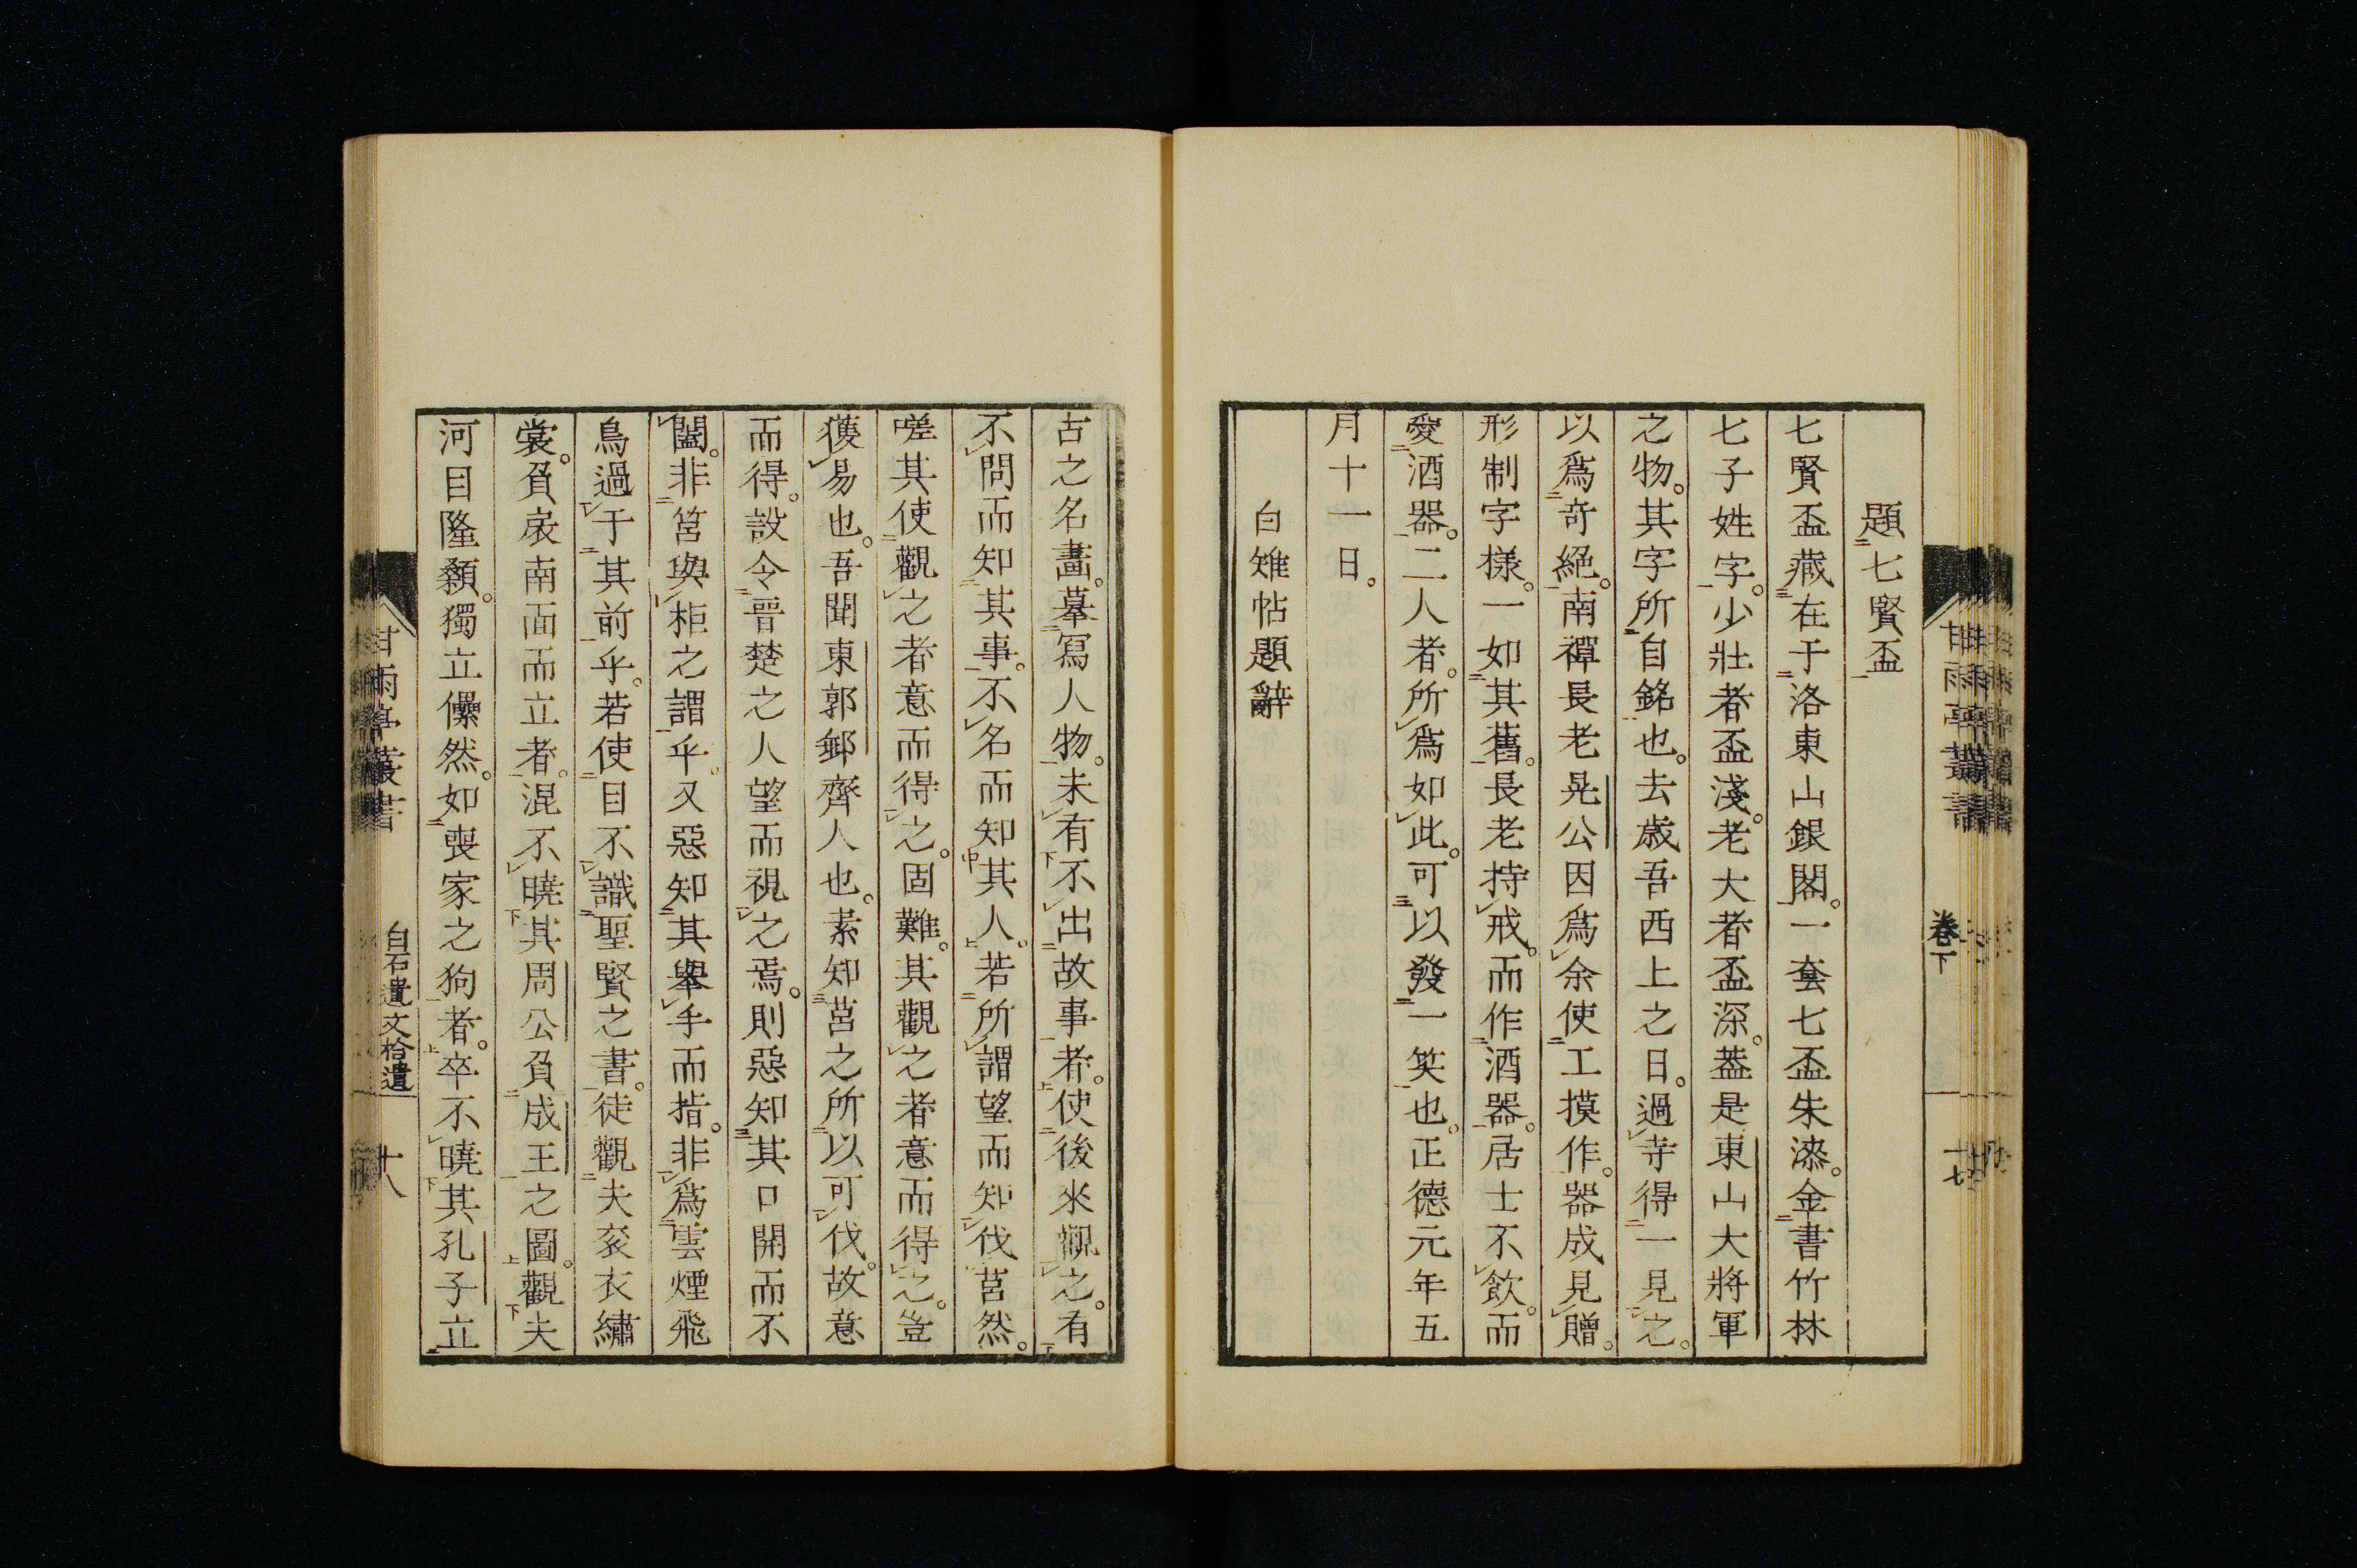 題七賢盃
七賢盃藏在于洛東山銀閣。一套七盃朱漆。金書竹林
七子姓字。少壯者盃淺。老大者盃深。蓋是東山大將軍
之物。其字所自銘也。去歲吾西上之日。過寺得一見之。
以爲奇絕。南禪長老晃公因爲余使工摸作。器成見贈。
形制字樣。一如其舊。長老持戒。而作酒器。居士不飲。而
愛酒器。二人者。所爲如此。可以發一笑也。正德元年五
月十一日。
白雉帖題辭
甘雨亭叢書
卷下
十七
古之名畫。摹寫人物。未有不出故事者。使後來觀之。有
不問而知其事。不名而知其人。若所謂望而知伐莒然。
嗟其使觀之者意而得之。固難。其觀之者意而得之。豈
獲易也。吾聞東郭郵齊人也。素知莒之所以可伐。故意
而得。設令晉楚之人望而視之焉。則惡知其口開而不
闔。非筥與柜之謂乎。又惡知其舉手而指。非爲雲煙飛
鳥過于其前乎。若使目不識聖賢之書。徒觀夫袞衣繡
裳。負扆南面而立者。混不曉其周公負成王之圖。觀夫
河目隆顙。獨立儽然。如喪家之狗者。卒不曉其孔子立
甘雨亭叢書
白石遺文拾遺
十八